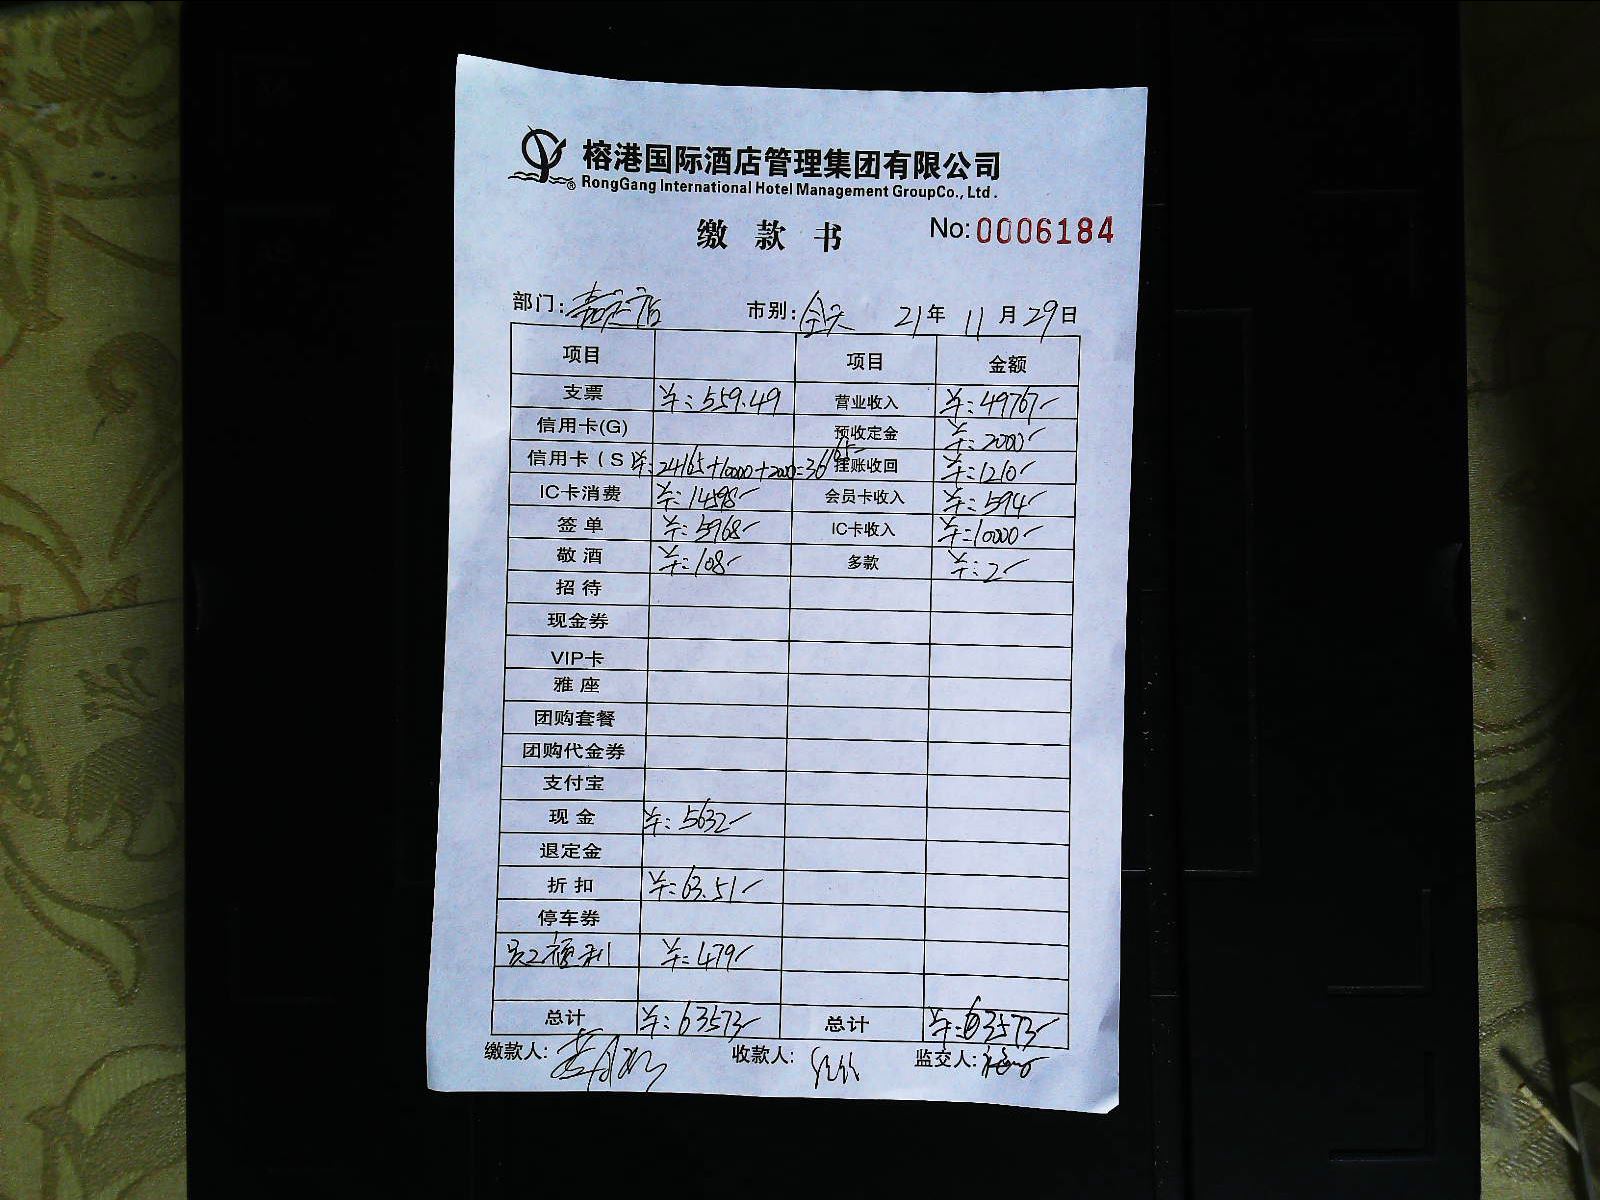 榕港国际酒店管理集团有限公司
RongGang International Hotel Management GroupCo., Ltd.
缴款书 No:0006184
部门: 嘉定店 市别: 全天 21年 11月 29日
项目 项目 金额
支票 ¥:559.49 营业收入 ¥:49767-
信用卡(G) 预收定金 ¥:2000-
信用卡(S ¥:24165+10000+2000=36165- 挂账收回 ¥:1210-
IC卡消费 ¥:14598- 会员卡收入 ¥:594-
签单 ¥:5968- IC卡收入 ¥:10000-
敬酒 ¥:108- 多款 ¥:2-
招待
现金券
VIP卡
雅座
团购套餐
团购代金券
支付宝
现金 ¥:5632-
退定金
折扣 ¥:63.51-
停车券
员工福利 ¥:479-
总计 ¥:63573- 总计 ¥:63573-
缴款人: 收款人: 监交人: